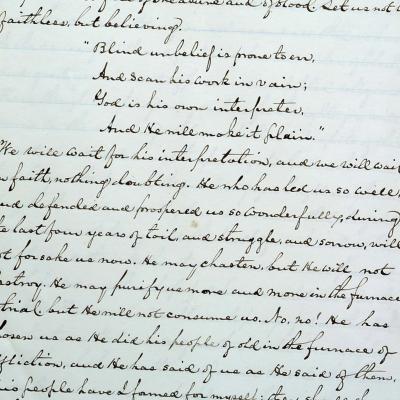 of treasure and of blood. Let us not be
faithless, but believing.
"Blind unbelief is prone to err,
And scan his work in vain;
God is his own interpreter,
And He will make it plain."
We will wait for his interpretation, and we will wait
in faith, nothing doubting. He who has led us so well,
and defended and prospered us so wonderfully, during
the last four years of toil, and struggle, and sorrow, will
not forsake us now. He may chasten, but He will not
destroy. He may purify us more and more in the furnace
trial, but He will not consume us. No, no! He has
chosen us as He did his people of old in the furnace of
affliction, and He has said of us as He said of them,
this people have I formed for myself; they shall